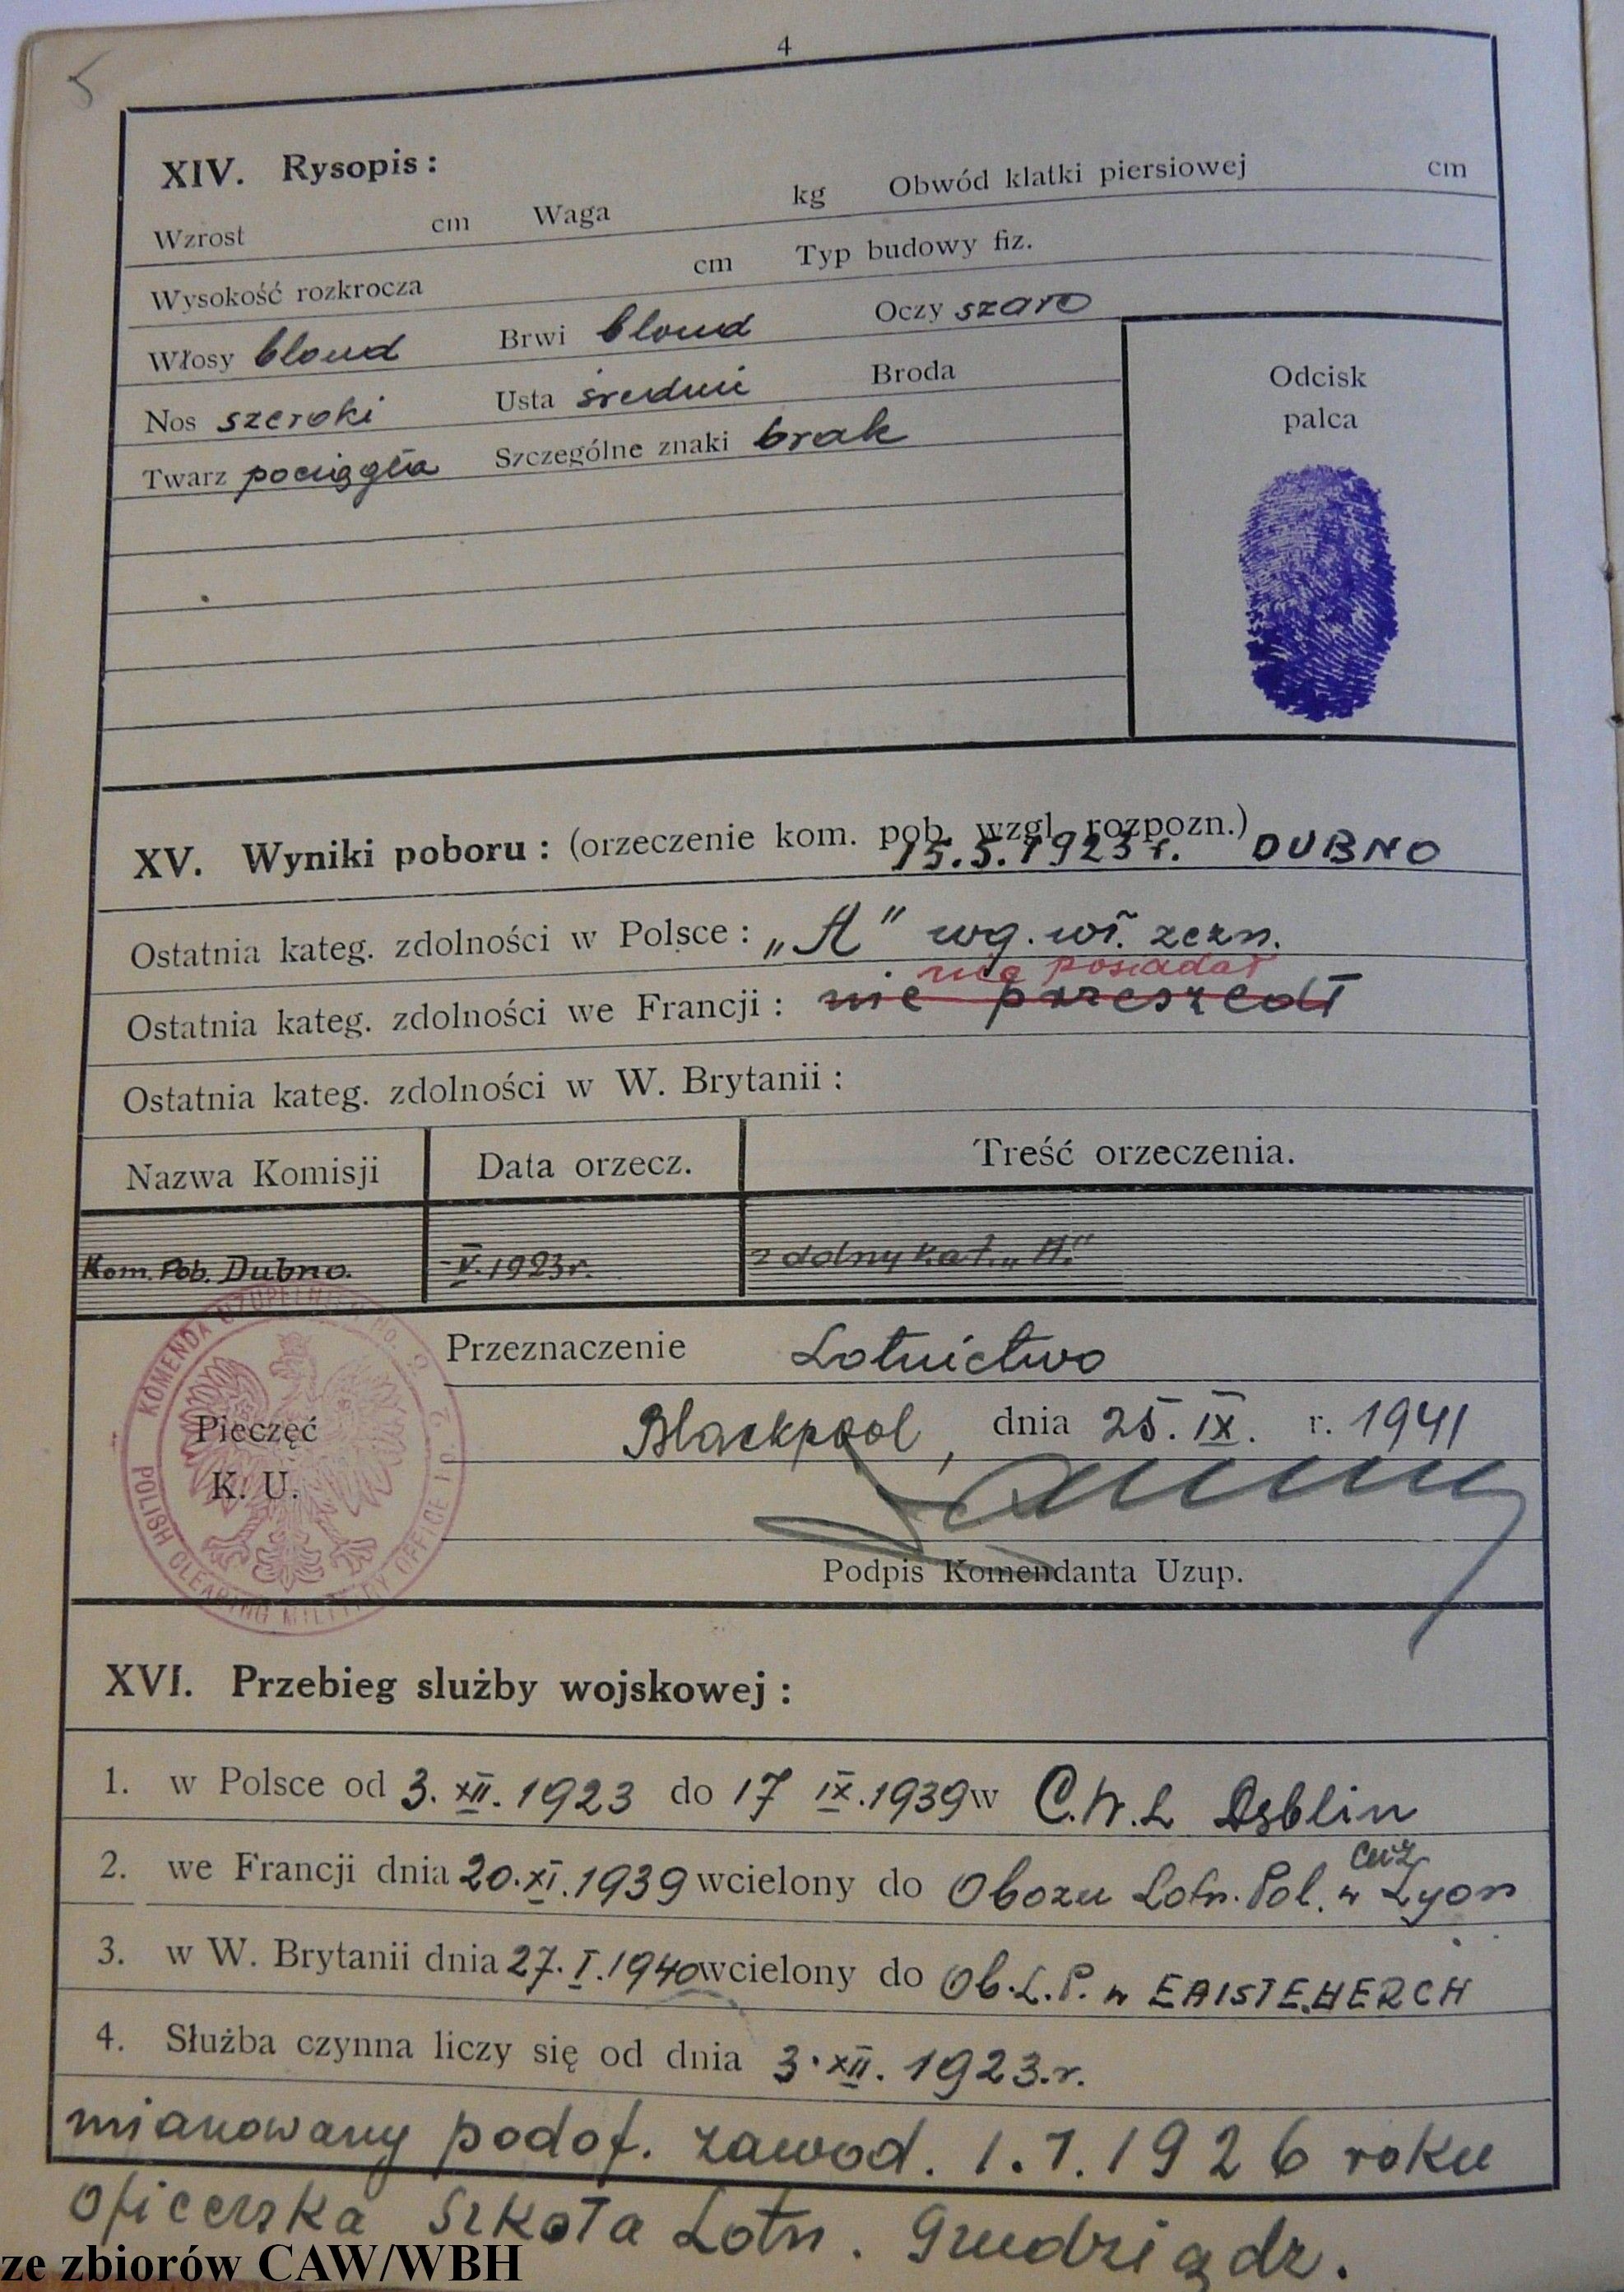 4
5
XIV. Rysopis :
Wzrost cm Waga kg Obwód klatki piersiowej cm
Wysokość rozkrocza cm Typ budowy fiz.
Włosy blond Brwi blond Oczy szare
Nos szeroki Usta średnie Broda
Twarz pociągła Szczególne znaki brak
Odcisk
palca
XV. Wyniki poboru : (orzeczenie kom. pob. wzgl. rozpozn.)
15.5.1923 r. DUBNO
Ostatnia kateg. zdolności w Polsce : „A” wg. wł. zezn.
nie posiadał
Ostatnia kateg. zdolności we Francji : nie przeszedł
Ostatnia kateg. zdolności w W. Brytanii :
Nazwa Komisji Data orzecz. Treść orzeczenia.
Kom. Pob. Dubno. -V.1923r. zdolny kat. „A.”
KOMENDA UZUPEŁNIEŃ NO. 2
POLISH CLEARING MILITARY OFFICE
Pieczęć
K. U.
Przeznaczenie Lotnictwo
Blackpool, dnia 25. IX. r. 1941
Podpis Komendanta Uzup.
XVI. Przebieg służby wojskowej :
1. w Polsce od 3. XII. 1923 do 17 IX.1939 w C.W.L Dęblin
2. we Francji dnia 20.XI.1939 wcielony do Obozu Lotn. Pol. w Lyon
3. w W. Brytanii dnia 27. I. 1940 wcielony do Ob.L.P. w EAISTEHERCH
4. Służba czynna liczy się od dnia 3.XII. 1923.r.
mianowany podof. zawod. 1.7.1926 roku
oficerska Szkoła Lotn. Grudziądz.
ze zbiorów CAW/WBH